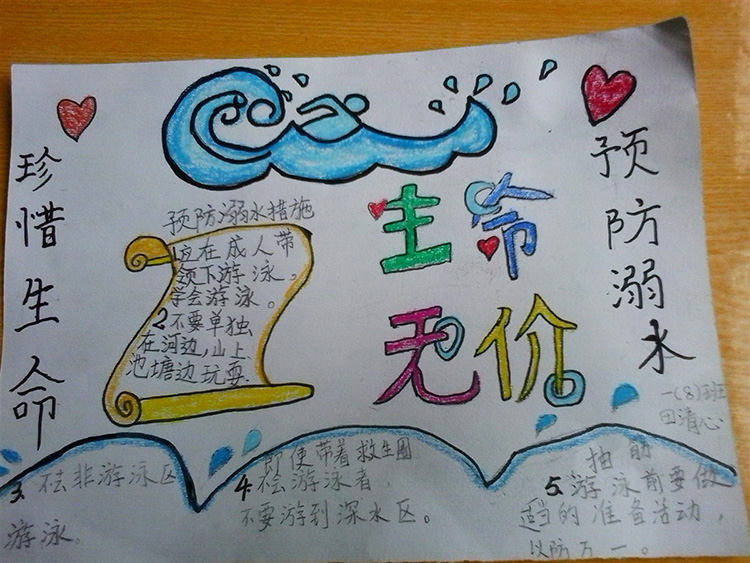 珍惜生命
预防溺水
生命
无价
预防溺水措施
1应在成人带
领下游泳。
学会游泳。
2不要单独
在河边,山上
池塘边玩耍.
一(8)班
田清心
3.不去非游泳区
游泳。
4.即使带着救生圈
不会游泳者,
不要游到深水区。
5.抽筋
游泳前要做
适当的准备活动,
以防万一。